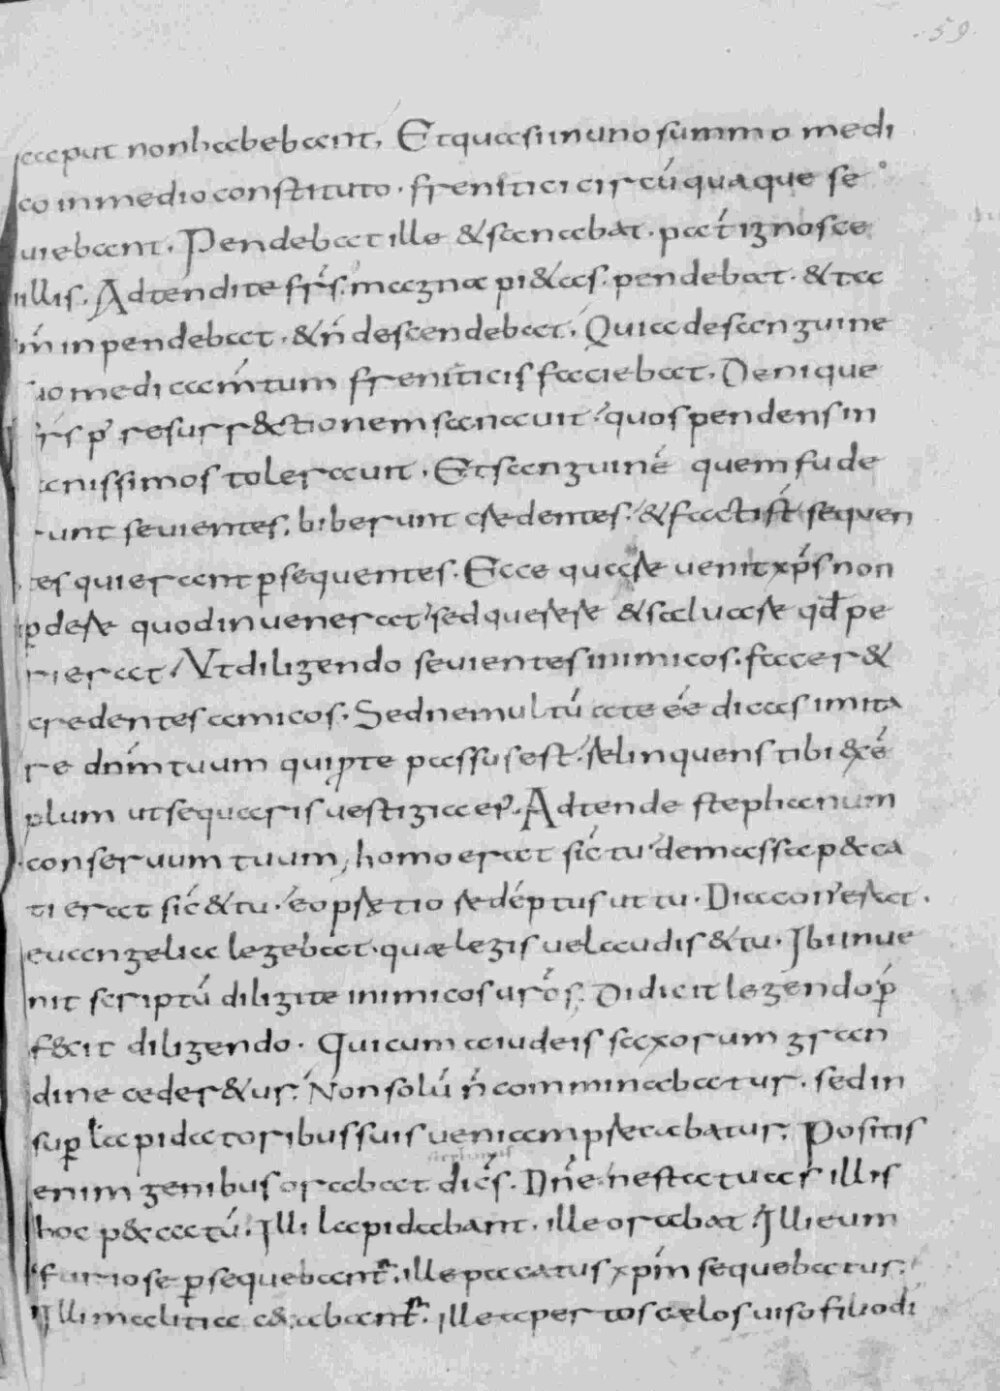 59
caput non habebant. Et quasi in uno summo medi
co in medio constituto. frenitici circū quaque se
uiebant. Pendebat ille & sanabat. pat ignosce
illis. Adtendite frs. magna pi&as. pendebat. & ta
m̄ inpendebat. & n̄ descendebat. Quia de sanguine
suo medicam̄tum freniticis faciebat. Denique
p resurr&ctionem sanauit. quos pendens in
sanissimos tolerauit. Et sanguinē quem fude
runt seuientes. biberunt credentes. & facti st̄ sequen
tes qui erant p̄sequentes. Ecce quare uenit xp̄s non
p̄dere quod inuenerat. sed querere & saluare qd̄ pe
rierat. Vt diligendo seuientes inimicos. facer&
credentes amicos. Sed ne multū a te eē dicas imita
re dn̄m tuum qui p te passus est. relinquens tibi exē
plum ut sequaris uestigia ei. Adtende stephanum
conseruum tuum, homo erat sic tu de massa pecca
ti erat sic & tu. eo p̄tio redēptus ut tu. Diacon' erat.
euangelia legebat. quæ legis uel audis & tu. Ibi inue
nit scriptū diligite inimicos urōs. Didicit legendo p
fecit diligendo. Qui cum a iudeis saxorum gran
dine ceder&ur. Non solū n̄ comminabatur. sed in
sup̄ lapidatoribus suis ueniam p̄cabatur. Positis
stephanus
enim genibus orabat dicēs. Dn̄e ne statuas illis
hoc peccatū. Illi lapidabant. ille orabat. Illi eum
furiose p̄sequebant. ille pacatus xp̄m sequebatur.
Illi malitia cecabant. ille apertos caelos uiso filio di